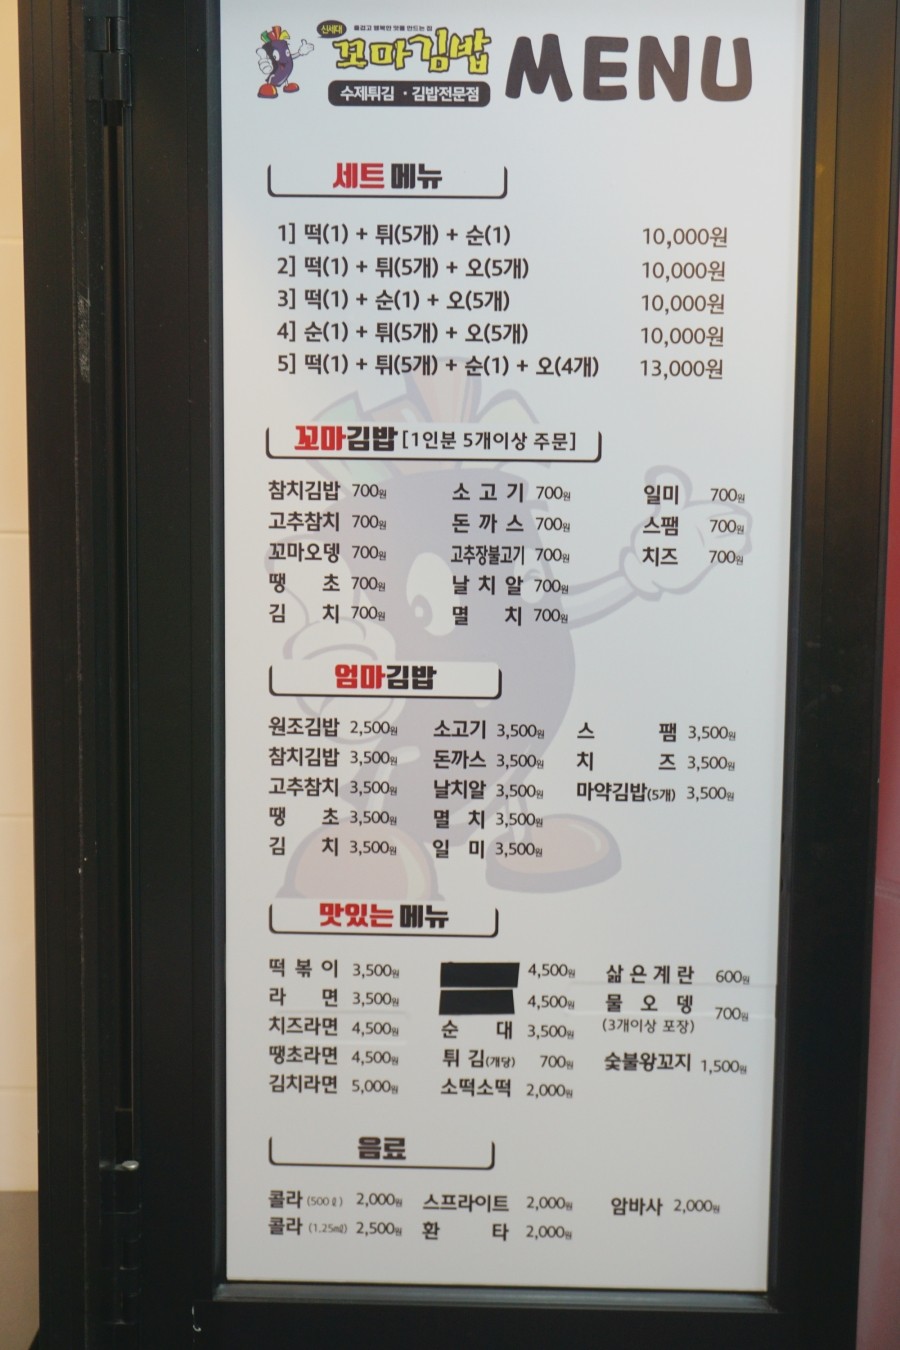 신세대 즐겁고 행복한 맛을 만드는 집
꼬마김밥 MENU
수제튀김 · 김밥전문점
세트 메뉴
1] 떡(1) + 튀(5개) + 순(1) 10,000원
2] 떡(1) + 튀(5개) + 오(5개) 10,000원
3] 떡(1) + 순(1) + 오(5개) 10,000원
4] 순(1) + 튀(5개) + 오(5개) 10,000원
5] 떡(1) + 튀(5개) + 순(1) + 오(4개) 13,000원
꼬마김밥 [1인분 5개이상 주문]
참치김밥 700원 소고기 700원 일미 700원
고추참치 700원 돈까스 700원 스팸 700원
꼬마오뎅 700원 고추장불고기 700원 치즈 700원
땡초 700원 날치알 700원
김치 700원 멸치 700원
엄마김밥
원조김밥 2,500원 소고기 3,500원 스팸 3,500원
참치김밥 3,500원 돈까스 3,500원 치즈 3,500원
고추참치 3,500원 날치알 3,500원 마약김밥(5개) 3,500원
땡초 3,500원 멸치 3,500원
김치 3,500원 일미 3,500원
맛있는 메뉴
떡볶이 3,500원 4,500원 삶은계란 600원
라면 3,500원 4,500원 물오뎅 700원
치즈라면 4,500원 순대 3,500원 (3개이상 포장)
땡초라면 4,500원 튀김(개당) 700원 숯불왕꼬지 1,500원
김치라면 5,000원 소떡소떡 2,000원
음료
콜라 (500ℓ) 2,000원 스프라이트 2,000원 암바사 2,000원
콜라 (1.25㎖) 2,500원 환타 2,000원